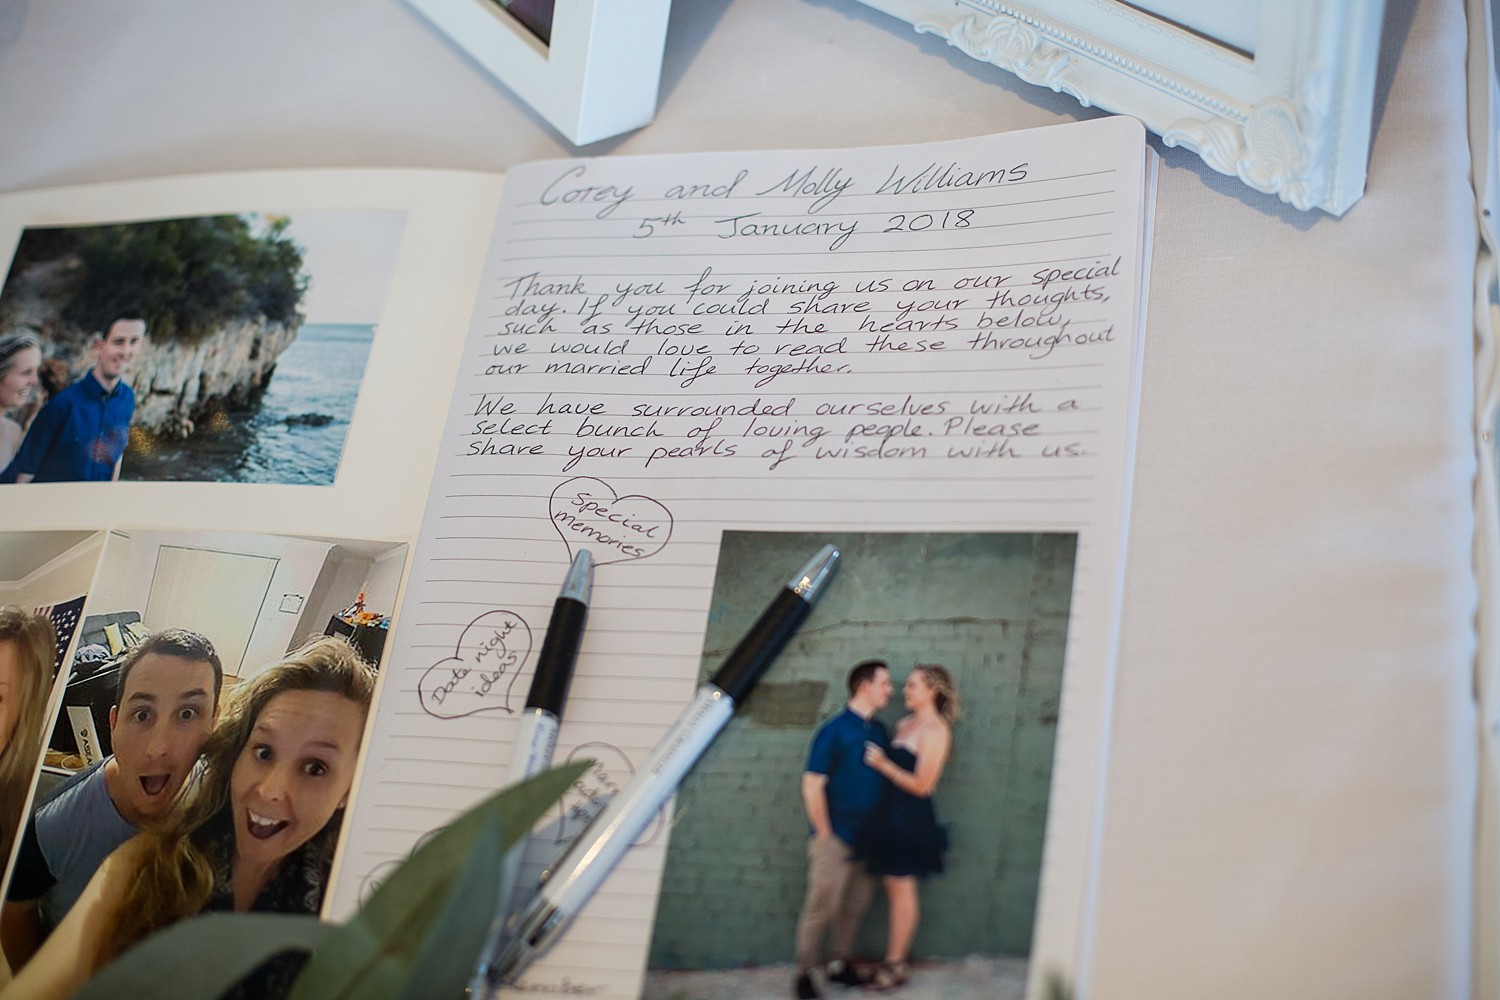 Corey and Molly Williams
5th January 2018
Thank you for joining us on our special
day. If you could share your thoughts,
such as those in the hearts below,
we would love to read these throughout
our married life together.
We have surrounded ourselves with a
select bunch of loving people. Please
share your pearls of wisdom with us.
Special
memories
Date night
ideas